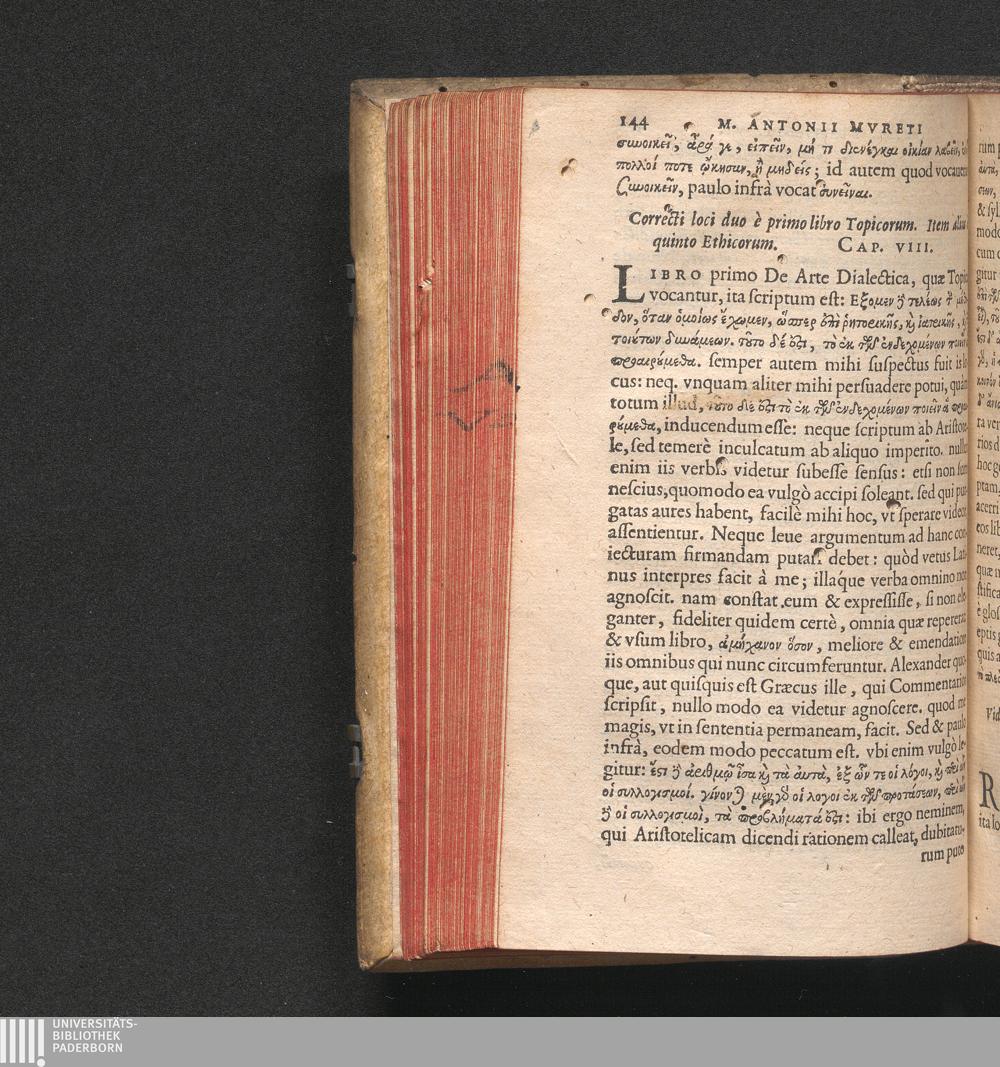 144 M. ANTONII MVRETI
συνοικεῖ, ἆρά γε, εἰπεῖν, μή τι διενέγκαι οἰκίαν λαβεῖν,
πολλοί ποτε ᾤκησαν, ἢ μηδείς; id autem quod vocauerat
συνοικεῖν, paulo infrà vocat συνεῖναι.
Correcti loci duo è primo libro Topicorum. Item alius
quinto Ethicorum. CAP. VIII.
LIBRO primo De Arte Dialectica, quæ Topica
vocantur, ita ſcriptum eſt: Εξομεν δὲ τελέως τὴν μέθο-
δον, ὅταν ὁμοίως ἔχωμεν, ὥσπερ ἐπὶ ῥητορικῆς, καὶ ἰατρικῆς, καὶ
τοιούτων δυνάμεων. τοῦτο δέ ἐστι, τὸ ἐκ τῶν ἐνδεχομένων ποιεῖν ἃ
προαιρούμεθα. ſemper autem mihi ſuſpectus fuit is lo-
cus: neq. vnquam aliter mihi perſuadere potui, quàm
totum illud, τοῦτο δέ ἐστι τὸ ἐκ τῶν ἐνδεχομένων ποιεῖν ἃ προαι-
ρούμεθα, inducendum eſſe: neque ſcriptum ab Ariſtote-
le, ſed temerè inculcatum ab aliquo imperito. nullus
enim iis verbis videtur ſubeſſe ſenſus: etſi non ſum
neſcius, quomodo ea vulgò accipi ſoleant. ſed qui pur-
gatas aures habent, facilè mihi hoc, vt ſperare videor
aſſentientur. Neque leue argumentum ad hanc con-
iecturam firmandam putari debet: quòd vetus Lati-
nus interpres facit à me; illaque verba omnino non
agnoſcit. nam conſtat eum & expreſſiſſe, ſi non ele-
ganter, fideliter quidem certè, omnia quæ repererat
& vſum libro, ἀμήχανον ὅσον, meliore & emendatiore
iis omnibus qui nunc circumferuntur. Alexander quo-
que, aut quiſquis eſt Græcus ille, qui Commentarios
ſcripſit, nullo modo ea videtur agnoſcere. quod me
magis, vt in ſententia permaneam, facit. Sed & paulo
infrà, eodem modo peccatum eſt. vbi enim vulgò le-
gitur: ἔστι δὲ ἀριθμῷ ἴσα καὶ τὰ αὐτὰ, ἐξ ὧν τε οἱ λόγοι, καὶ περὶ ὧν
οἱ συλλογισμοί. γίνονται μὲν γὰρ οἱ λόγοι ἐκ τῶν προτάσεων, περὶ ὧν
δὲ οἱ συλλογισμοὶ, τὰ προβλήματά ἐστι: ibi ergo neminem,
qui Ariſtotelicam dicendi rationem calleat, dubitatu-
rum puto
rum p
αὐτα,
& ſyl
modo
cum
gitur
ra ver
rios d
hoc g
ptam,
acerri
eos lib
neret,
quæ
ſtifica
è gloſ
eptis
quis a
Vid
R
ita lo
UNIVERSITÄTS-
BIBLIOTHEK
PADERBORN